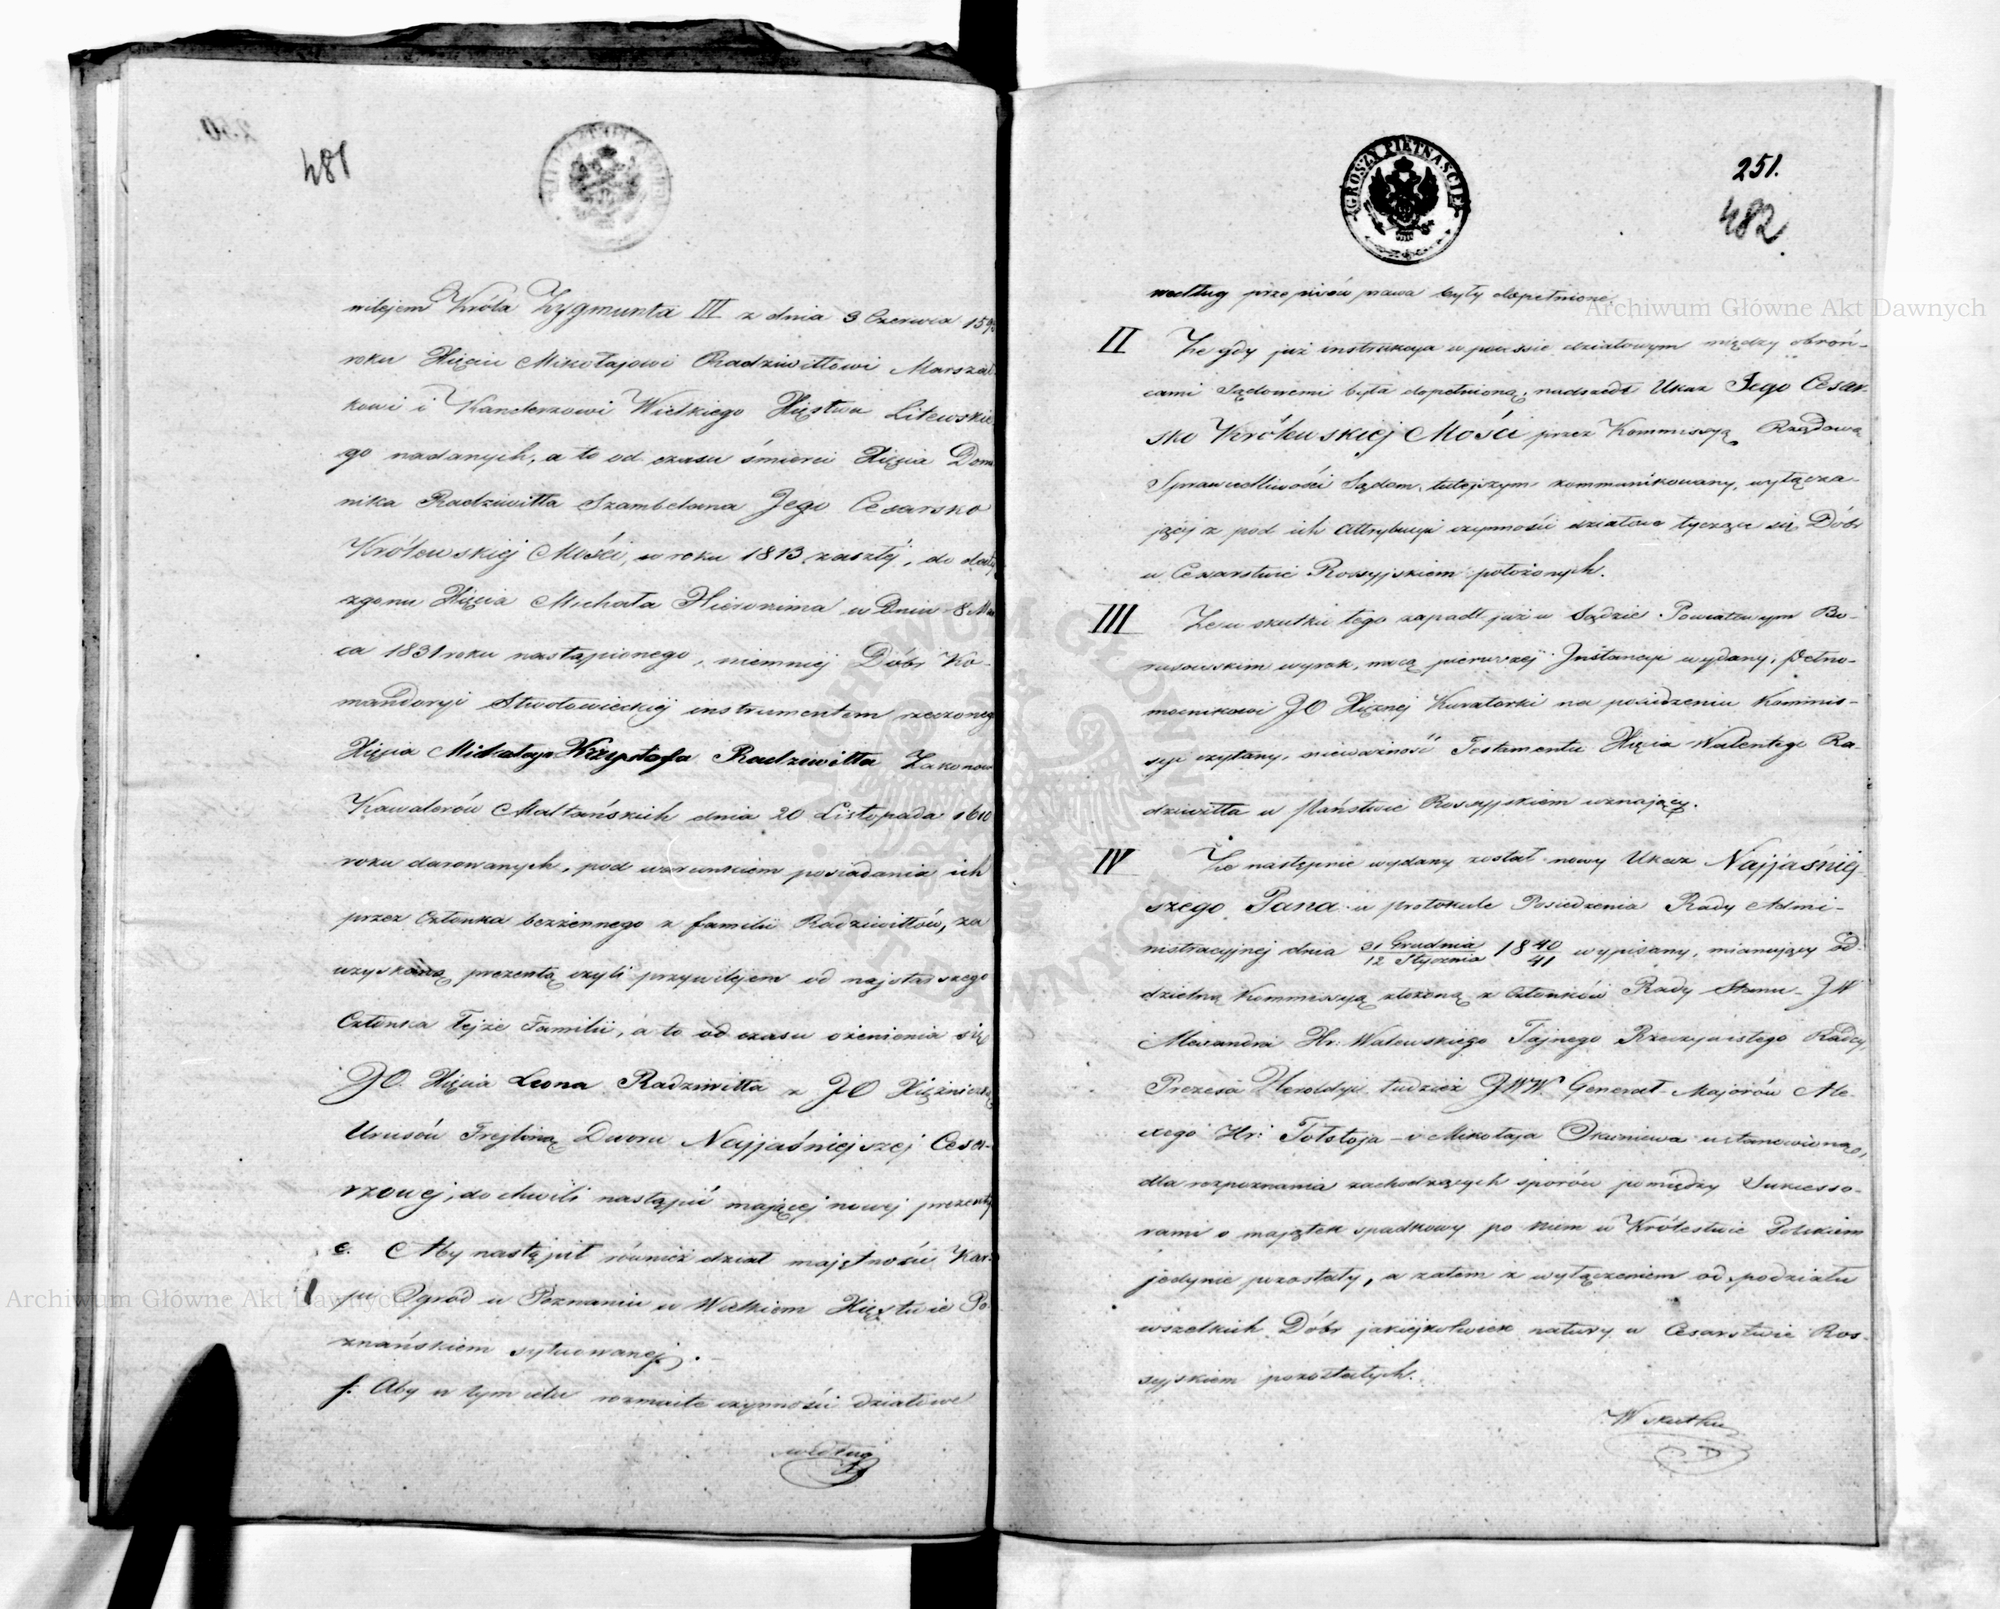 481
wilejem Króla Zygmunta III z dnia 3 Czerwca 15
roku Xięciu Mikołajowi Radziwiłłowi Marszał
kowi i Kanclerzowi Wielkiego Xięstwa Litewskie
go nadanych, a to od czasu śmierci Xięcia Domi
nika Radziwiłła Szambelana Jego Cesarsko
Królewskiej Mości, w roku 1813 zaszłej, do daty
zgonu Xięcia Michała Hieronima w Dniu 8 Mar
ca 1831 roku nastąpionego, niemniej Dóbr Ko-
mandoryi Stwołowickiej instrumentem rzeczonego
Xięcia Mikołaja Krzysztofa Radziwiłła Zakonowi
Kawalerów Maltańskich dnia 20 Listopada 1610
roku darowanych, pod warunkiem posiadania ich
przez Członka bezżennego z familii Radziwiłłów, za
uzyskaną prezentą czyli przywilejem od najstarszego
Członka tejże Familii, a to od czasu ożenienia się
JO. Xięcia Leona Radziwiłła z JO Xiężniczką
Urusów Frejliną Dworu Najjaśniejszej Cesa-
rzowej, do chwili nastąpić mającej nowej prezenty
e. Aby nastąpił również dział majętności
Ogród w Poznaniu w Wielkiem Xięstwie Po-
znańskiem sytuowanej.
f. Aby w tym celu rozmaite czynności działowe
według
GROSZY PIĘTNAŚCIE
251.
482
według przepisów prawa były dopełnione.
II Że gdy już instrukcya w processie działowym między obroń-
cami Sądowemi była dopełnioną, nadszedł Ukaz Jego Cesar-
sko Królewskiej Mości przez Kommissyą Rządową
Sprawiedliwości Sądom tutejszym kommunikowany, wyłącza-
jący z pod ich attrybucyi czynności działowe tyczące się Dóbr
w Cesarstwie Rossyjskiem położonych.
III Że w skutku tego zapadł już w Sądzie Powiatowym Bo-
rusowskim wyrok, mocą pierwszej Instancyi wydany, Pełno-
mocnikowi JO Xiężnej Kuratorki na posiedzeniu Kommis-
syi czytany, nieważność Testamentu Xięcia Walentego Ra-
dziwiłła w Państwie Rossyjskiem uznający.
IV Że następnie wydany został nowy Ukaz Najjaśniej-
szego Pana w protokule Posiedzenia Rady Admi-
nistracyjnej dnia 31 Grudnia / 12 Stycznia 18 40/41 wypisany, mianujący od-
dzielną Kommissyą złożoną z Członków Rady Stanu JW
Alexandra Hr: Walewskiego Tajnego Rzeczywistego Radcy,
Prezesa Heroldyi, tudzież JWW. Generał-Majorów Ale-
xego Hr: Tołstoja i Mikołaja Okuniewa ustanowioną,
dla rozpoznania zachodzących sporów pomiędzy Sukcesso-
rami o majątek spadkowy po kiem w Królestwie Polskiem
jedynie pozostały, a zatem z wyłączeniem od podziału
wszelkich Dóbr jakiejkolwiek natury w Cesarstwie Ros-
syjskiem pozostałych.
W skutku
Archiwum Główne Akt Dawnych
Archiwum Główne Akt Dawnych